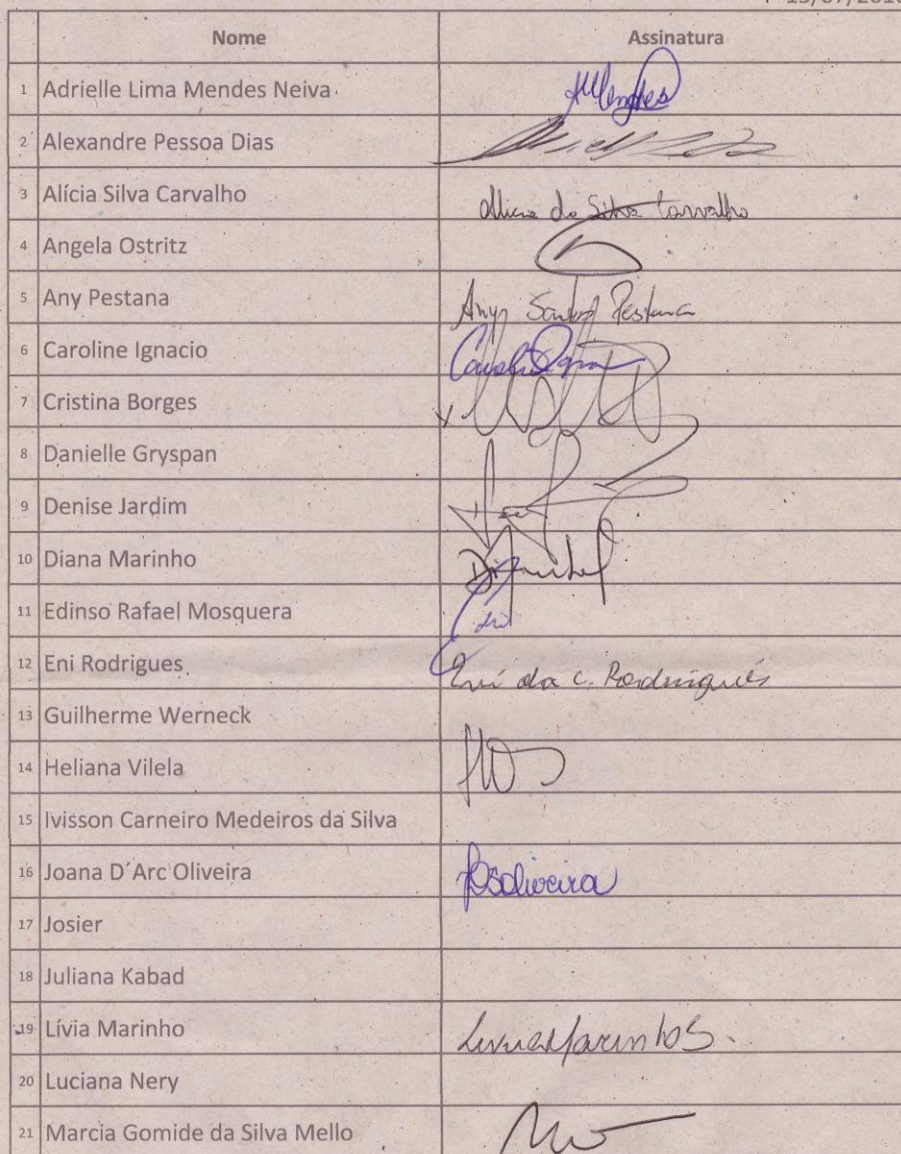 Nome Assinatura
1 Adrielle Lima Mendes Neiva
2 Alexandre Pessoa Dias
3 Alícia Silva Carvalho Alicia da Silva Carvalho
4 Angela Ostritz
5 Any Pestana Any Santos Pestana
6 Caroline Ignacio
7 Cristina Borges
8 Danielle Gryspan
9 Denise Jardim
10 Diana Marinho
11 Edinso Rafael Mosquera
12 Eni Rodrigues Eni da C. Rodrigues
13 Guilherme Werneck
14 Heliana Vilela
15 Ivisson Carneiro Medeiros da Silva
16 Joana D´Arc Oliveira
17 Josier
18 Juliana Kabad
19 Lívia Marinho
20 Luciana Nery
21 Marcia Gomide da Silva Mello